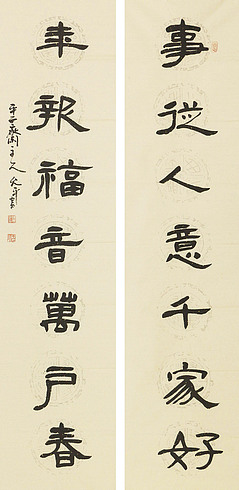 事從人意千家好
年報福音萬戶春